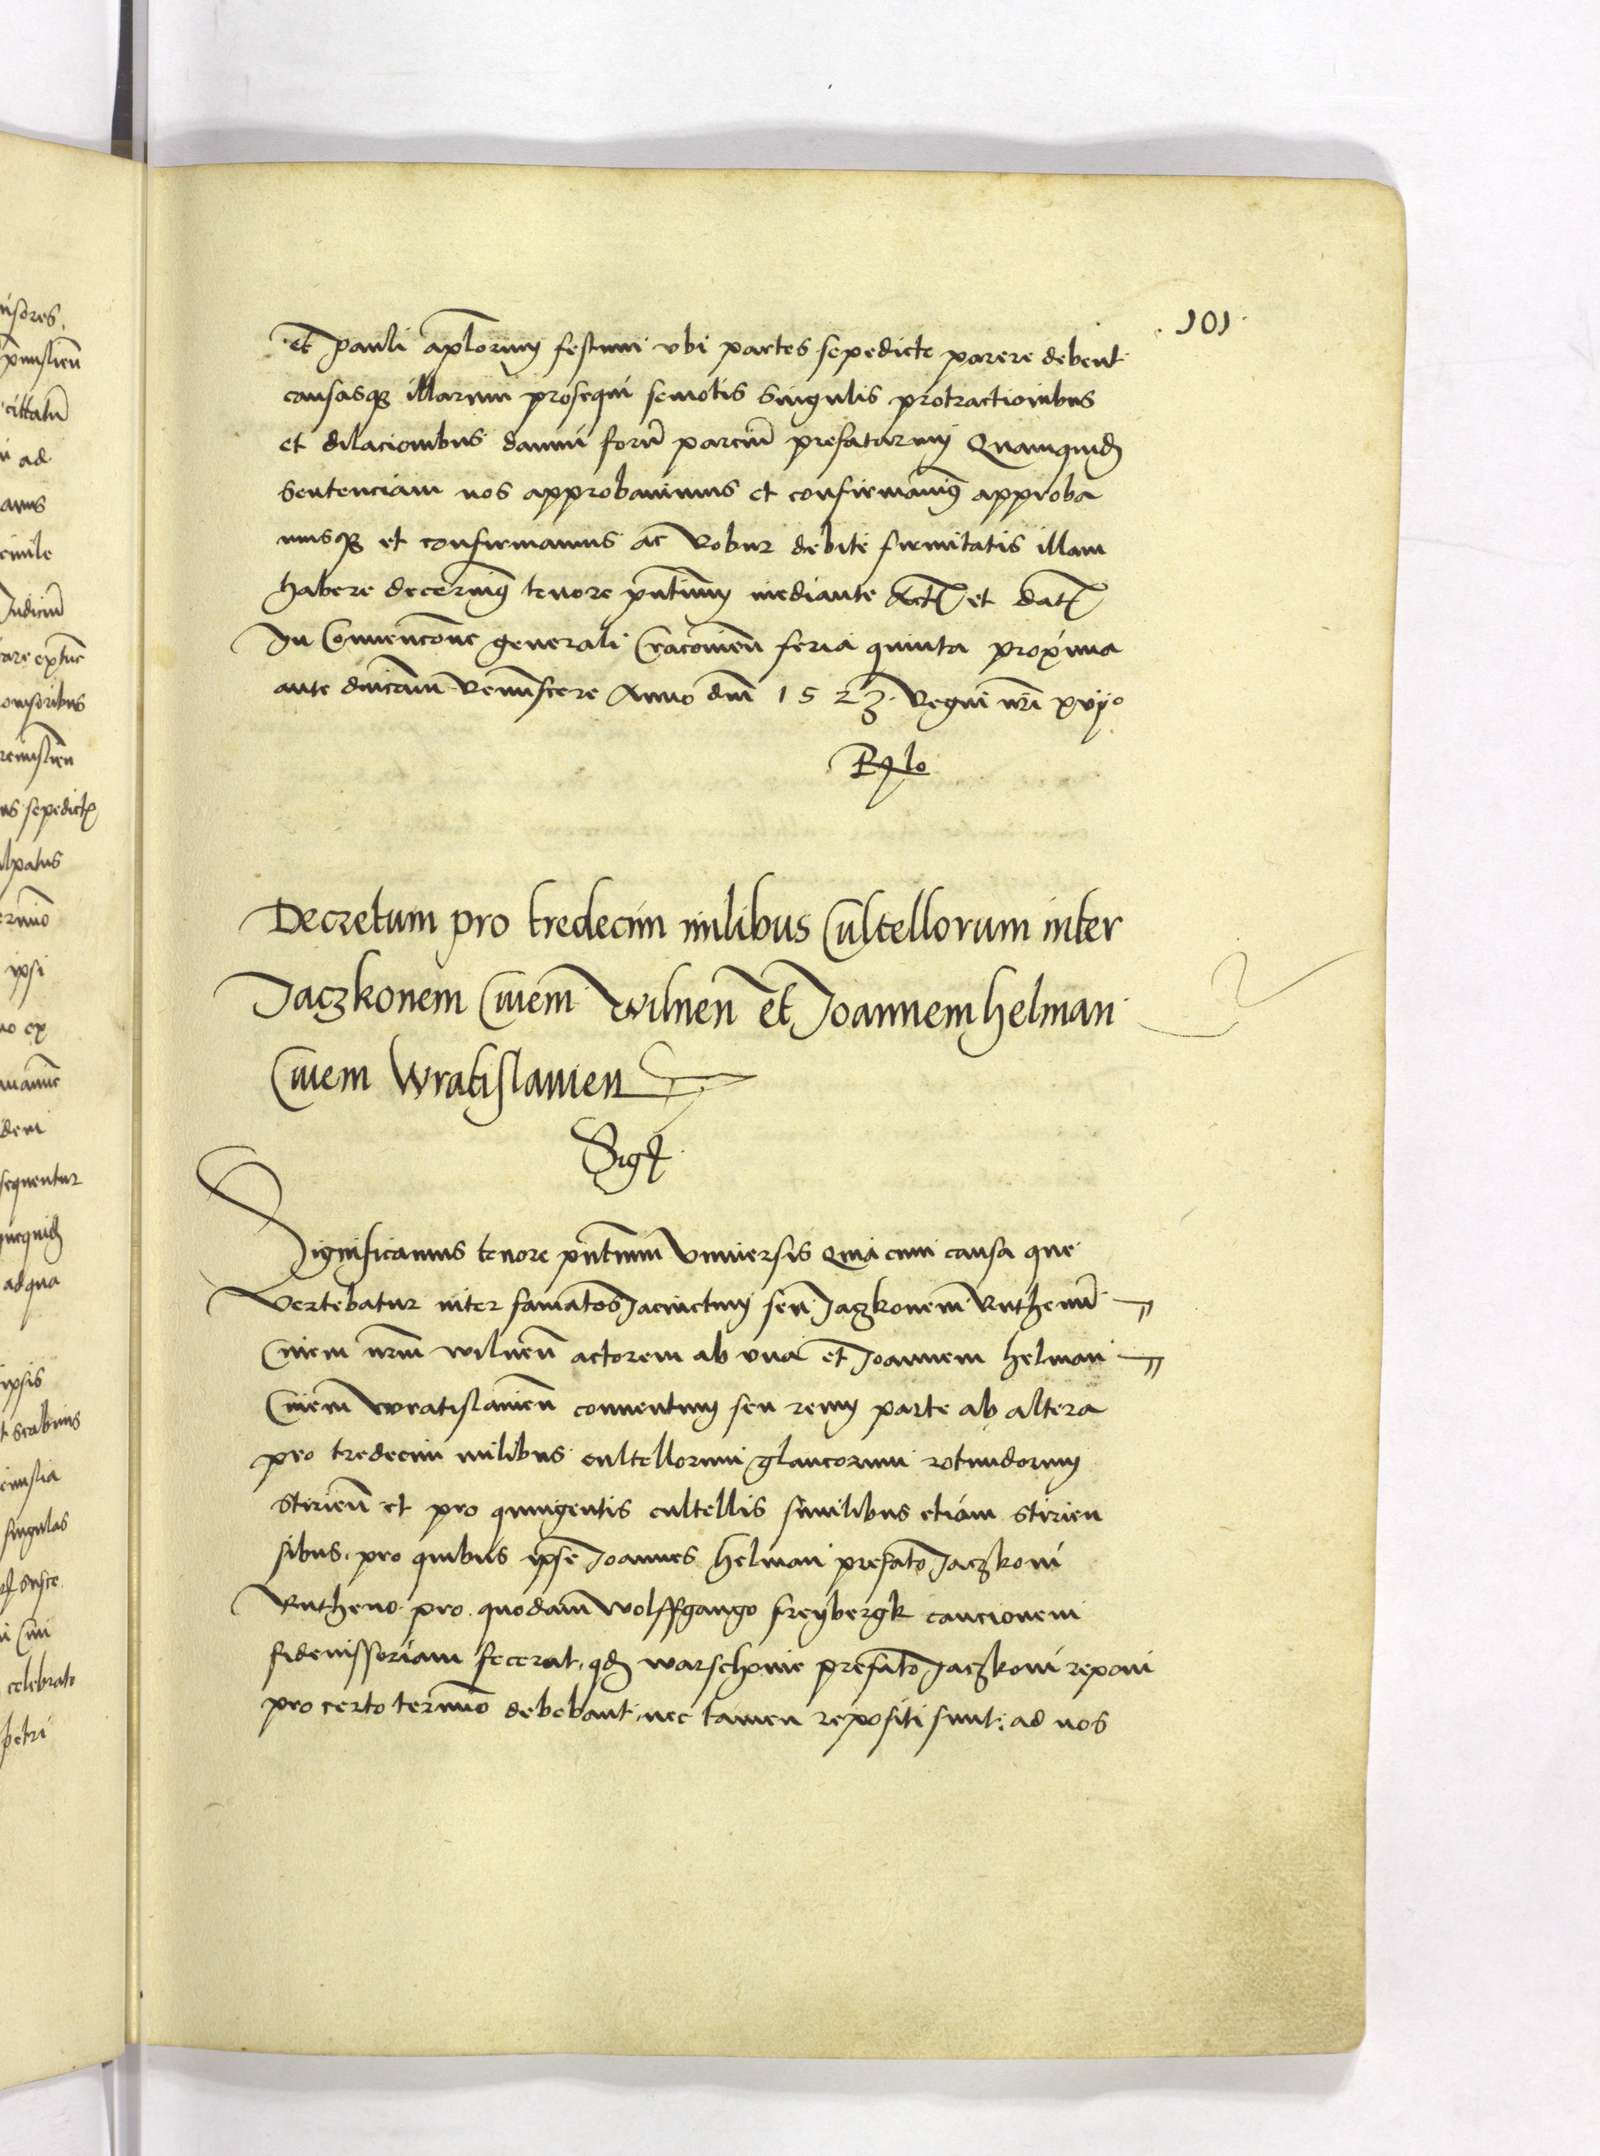 101
et Pauli aplorum festum ubi partes sepedicte parere debent
causasq illarum prosequi semotis singulis protractionibus
et dilacionibus damni foru parciu prefatarum Quamquid
sentenciam nos approbavimus et confirmavim approba
musq et confirmamus ac Robur debite firmitatis illam
habere decernim tenore pntium mediante Act et dat
In Convencone generali Cracovien feria quinta proxima
ante dnicam Reminiscere Anno dni 1523 Regni nri xvijo
Decretum pro tredecim milibus Cultellorum inter
Jaczkonem Civem Wilnen et Joannem helman
Civem Wratislavien
Sig
Significamus tenore pntium Universis Quia cum causa que
Vertebatur inter famatos Jacinctum seu Jaczkonem Ruthenu
Civem nrm wilnen actorem ab una et Joannem helman
Civem wratislavien conventum seu reum parte ab altera
pro tredecim milibus cultellorum glaucorum rotundorum
stirien et pro quingentis cultellis similibus etiam stirien
sibus, pro quibus ipse Joannes helman prefato Jaczkoni
Rutheno pro quodam Wolffgango freybergk caucionem
fideiussoriam fecerat, qd warschovie prefato Jaczkoni reponi
pro certo termino debebant, nec tamen repositi sunt, ad nos
nisores
ad
Judiciu
sepedict
ipsi
sequentur
adqua
ipsis
singulas
celebrato
petri